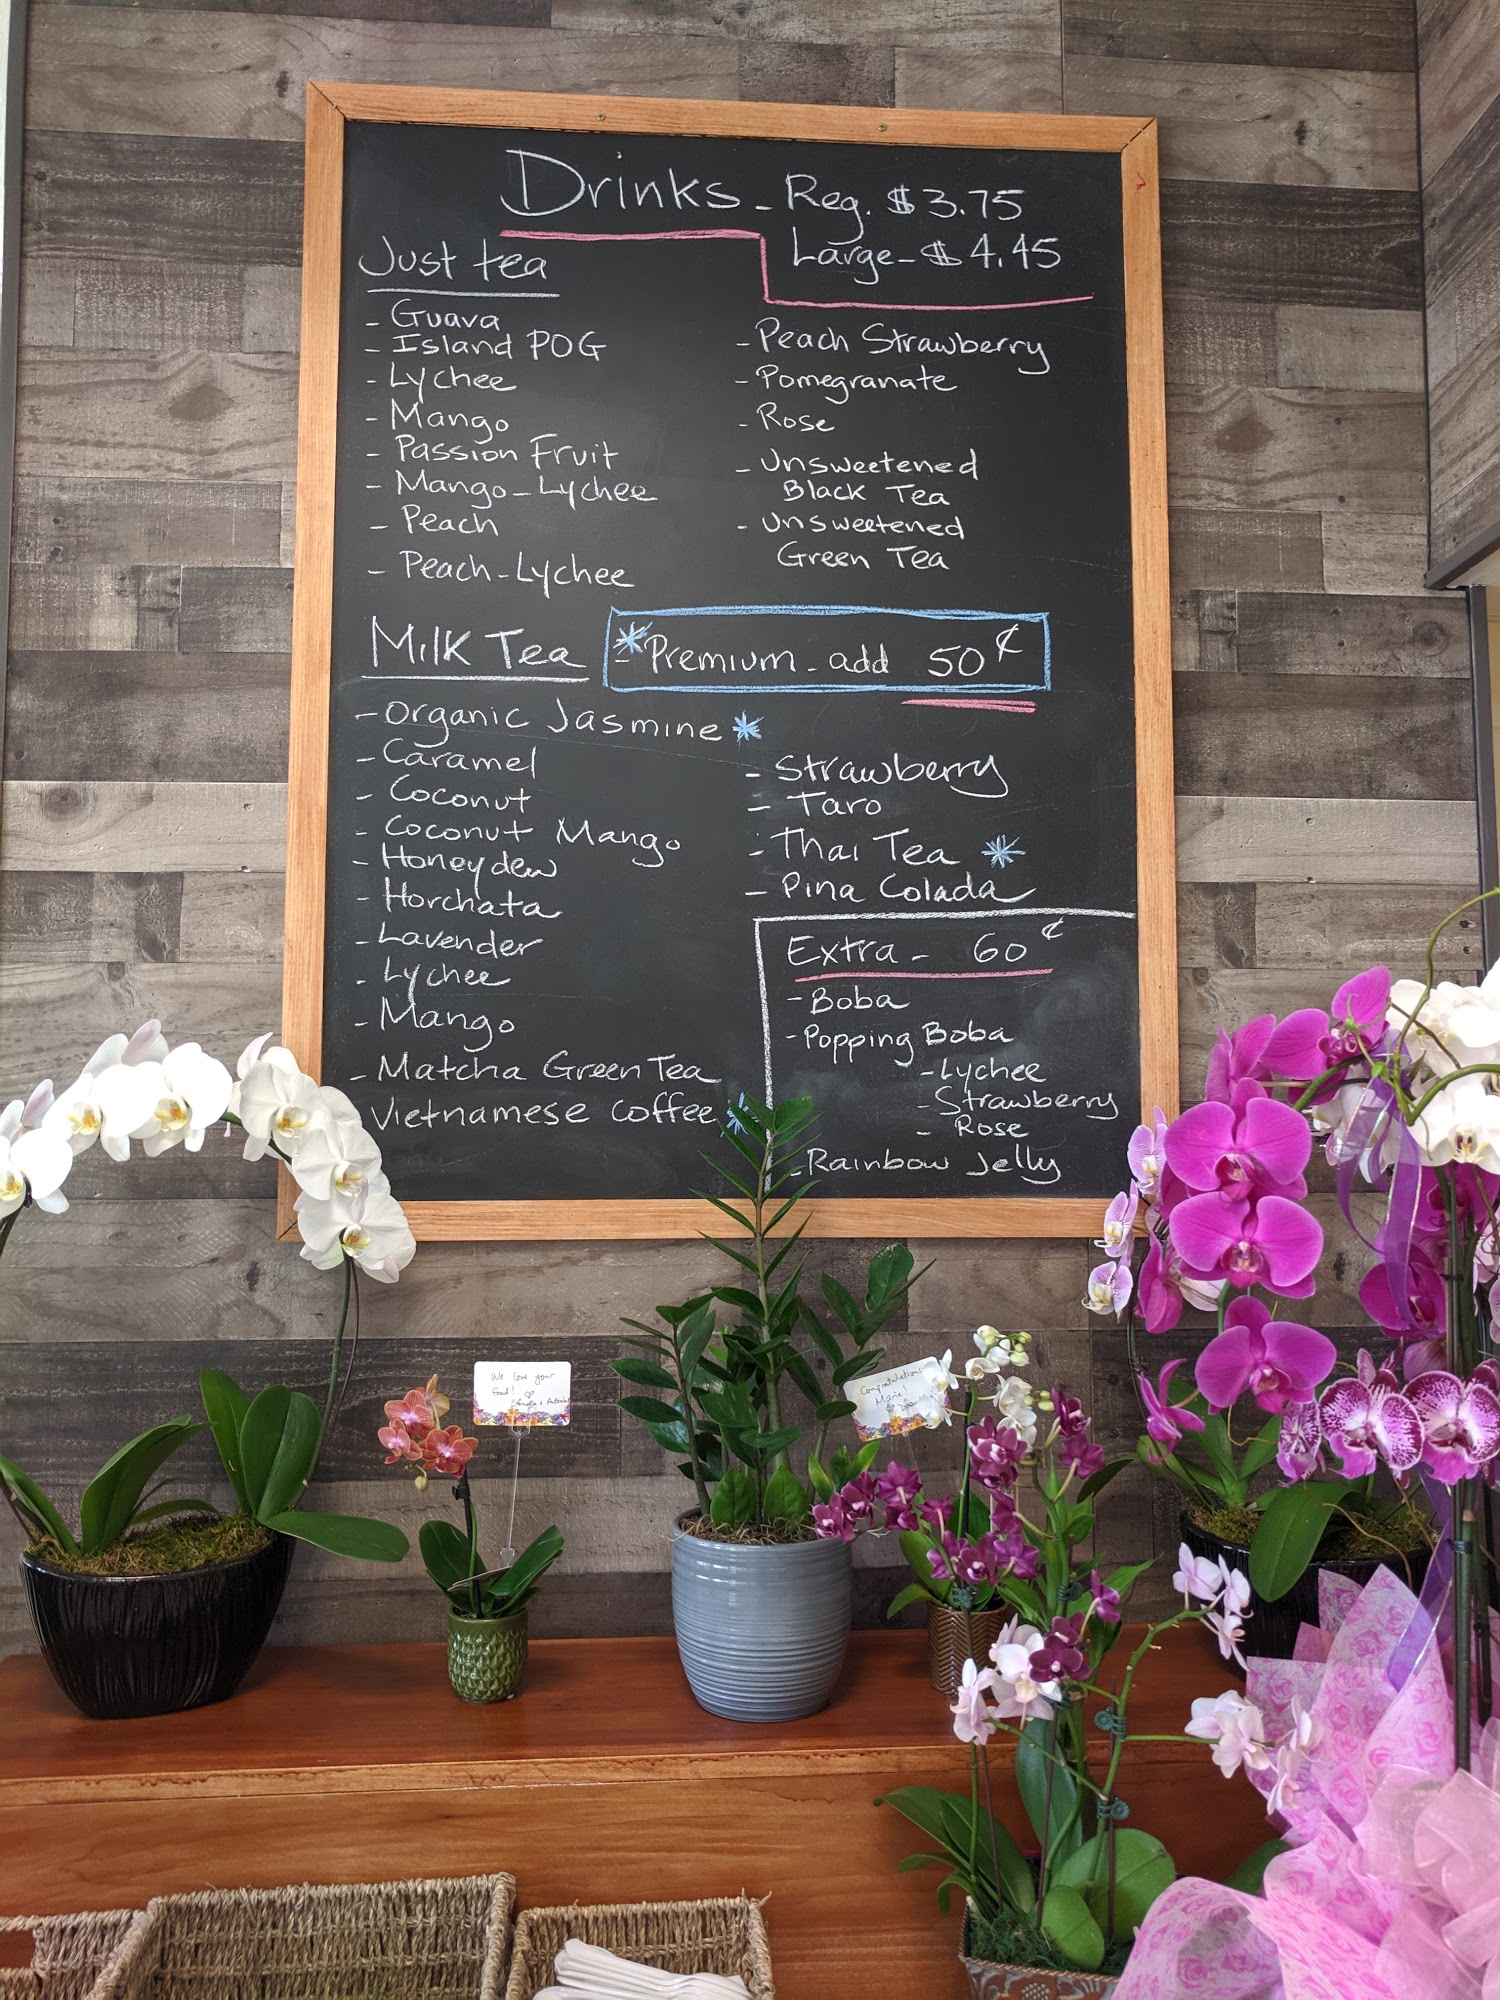 Drinks - Reg. $3.75
Large - $4.45
Just tea
- Guava
- Island POG
- Lychee
- Mango
- Passion Fruit
- Mango - Lychee
- Peach
- Peach - Lychee
- Peach Strawberry
- Pomegranate
- Rose
- Unsweetened
Black Tea
- Unsweetened
Green Tea
Milk Tea
* - Premium - add 50¢
- Organic Jasmine *
- Caramel
- Coconut
- Coconut Mango
- Honeydew
- Horchata
- Lavender
- Lychee
- Mango
- Matcha Green Tea
- Vietnamese Coffee *
- Strawberry
- Taro
- Thai Tea *
- Pina Colada
Extra - 60¢
- Boba
- Popping Boba
- Lychee
- Strawberry
- Rose
- Rainbow Jelly
We love your
food! ♡
Congratulations
Marie!